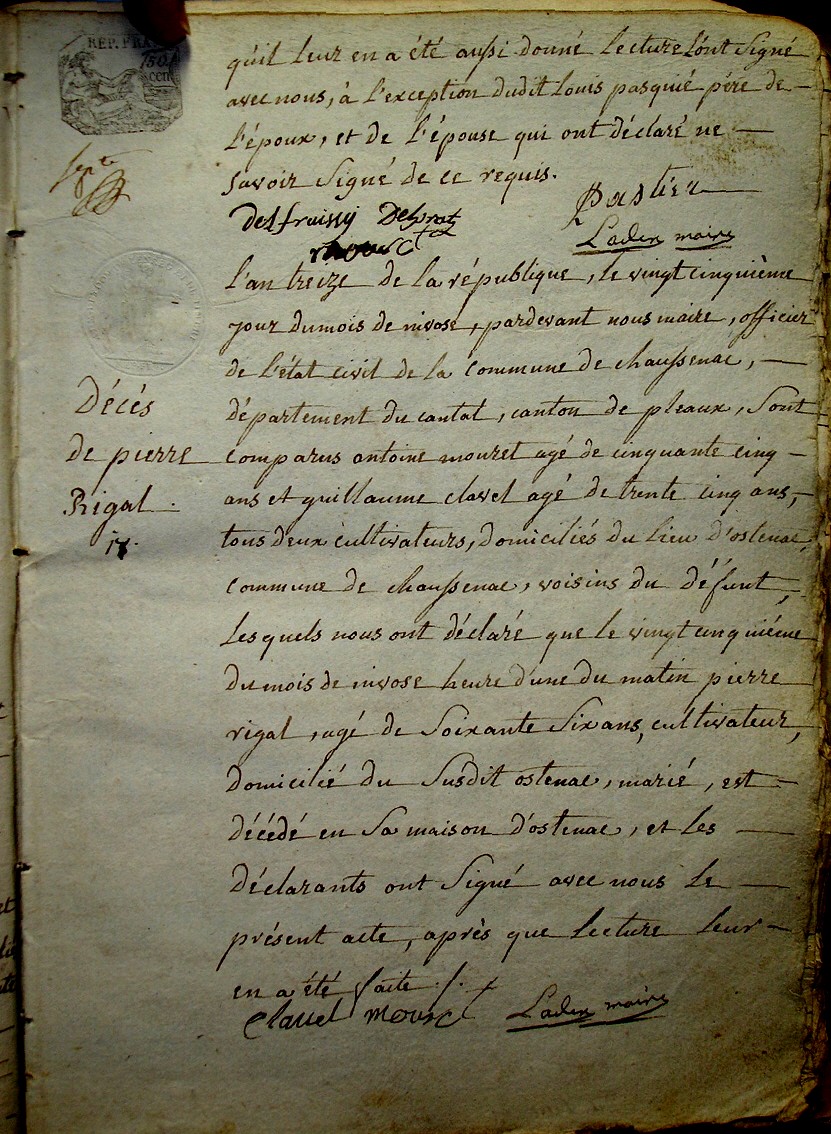 REP. FRA
150
cent
qu'il leur en a été aussi donné lecture l'ont Signé
avec nous, à l'exception dudit Louis pasquié père de
l'époux, et de l'épouse qui ont déclaré ne
Savoir Signé de ce requis.
Delfraissy Delprat
Pastier
mouret
Lader maire
L'an treize de la république, le vingt cinquième
jour du mois de nivose, pardevant nous maire, officier
de l'état civil de la Commune de chaussenac,
Décés
département du cantal, canton de pleaux, Sont
de pierre
comparus antoine mouret agé de cinquante cinq
Rigal.
ans et guillaume clavel agé de trente cinq ans,
tous deux cultivateurs, domiciliés du lieu d'ostenac,
commune de chaussenac, voisins du défunt,
Lesquels nous ont déclaré que le vingt cinquième
du mois de nivose heure d'une du matin pierre
rigal, agé de Soixante Six ans, cultivateur,
domicilié du Susdit ostenac, marié, est
décédé en Sa maison d'ostenac, et les
déclarants ont Signé avec nous le
présent acte, après que lecture leur
en a été faite ./.
Clauel mouret Lader maire